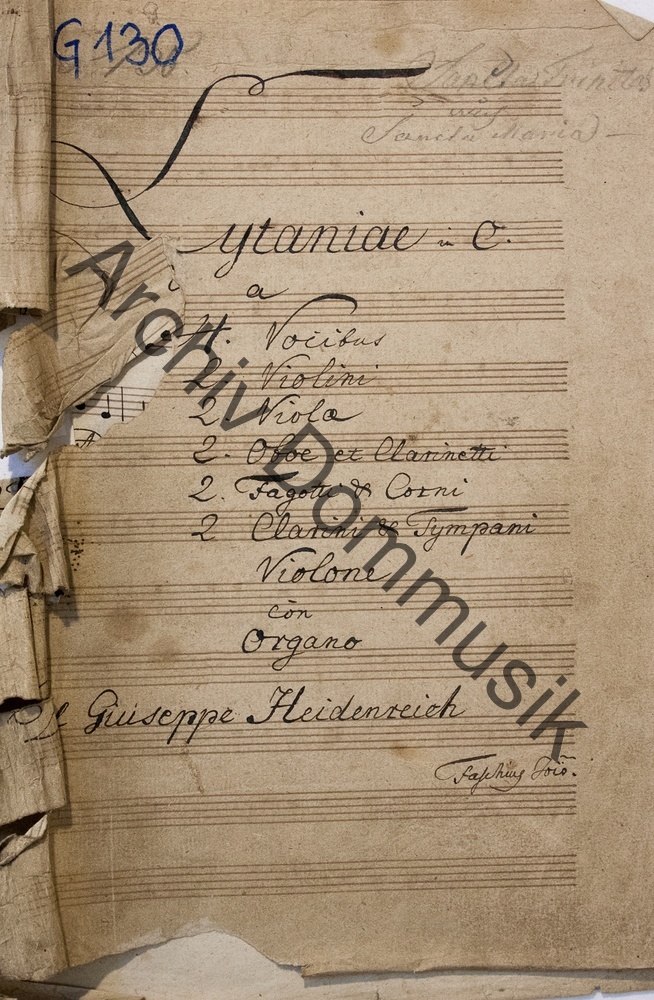 G 130
Sancta Maria
Lytaniae in C.
a
4. Vocibus
2. Violini
2. Viola
2. Oboe et Clarinetti
2. Fagotti & Corni
2 Clarini & Tympani
Violone
còn
Organo
Giuseppe Heidenreich
Archiv Dommusik